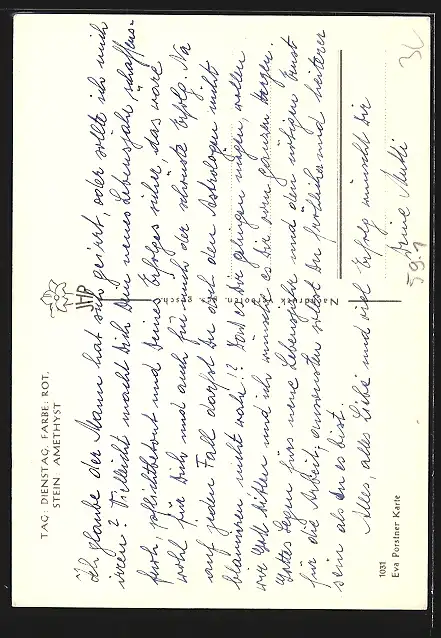 TAG: DIENSTAG, FARBE: ROT,
STEIN AMETHYST
Ich glaube der Mann hat sich geirrt, oder sollte ich mich
irren? Vielleicht macht Dich Dein neues Lebensjahr schaffens-
froh, pflichtbetont und Deines Erfolges sicher, das wäre
wohl für Dich und auch für mich der schönste Erfolg. Na
auf jeden Fall darfst Du doch den Astrologen nicht
blamieren nicht wahr!? Daß es Dir gelingen mögen, wollen
wir Gott bitten und ich wünsche es Dir von ganzem Herzen.
Gottes Segen fürs neue Lebensjahr und den nötigen Ernst
für die Arbeit, ansonsten sollst Du fröhlicher und heiterer
sein als Du es bist.
Alles, alles Liebe und viel Erfolg wünscht Dir
Deine Mutti
59.1
Nachdruck verboten, ges. gesch.
1031
Eva Porstner Karte